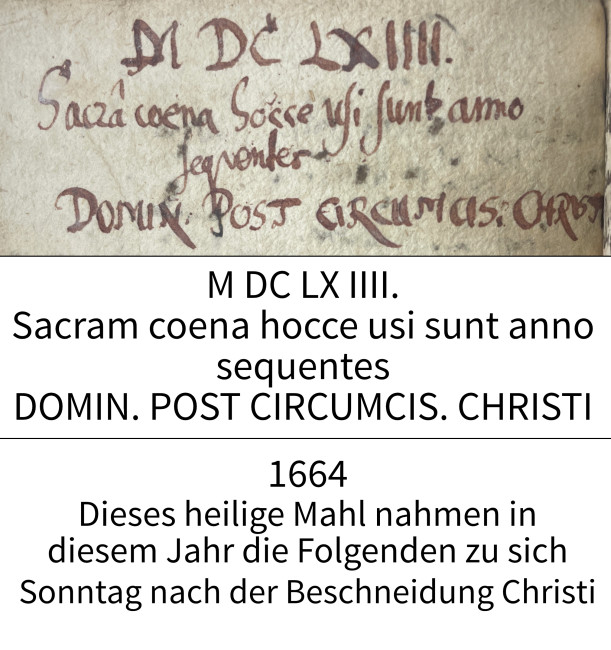 M DC LXIIII.
Sacrâ coena hocce usi sunt anno
sequentes
DOMIN. POST CIRCUMCIS. CHRIST
M DC LX IIII.
Sacram coena hocce usi sunt anno
sequentes
DOMIN. POST CIRCUMCIS. CHRISTI
1664
Dieses heilige Mahl nahmen in
diesem Jahr die Folgenden zu sich
Sonntag nach der Beschneidung Christi